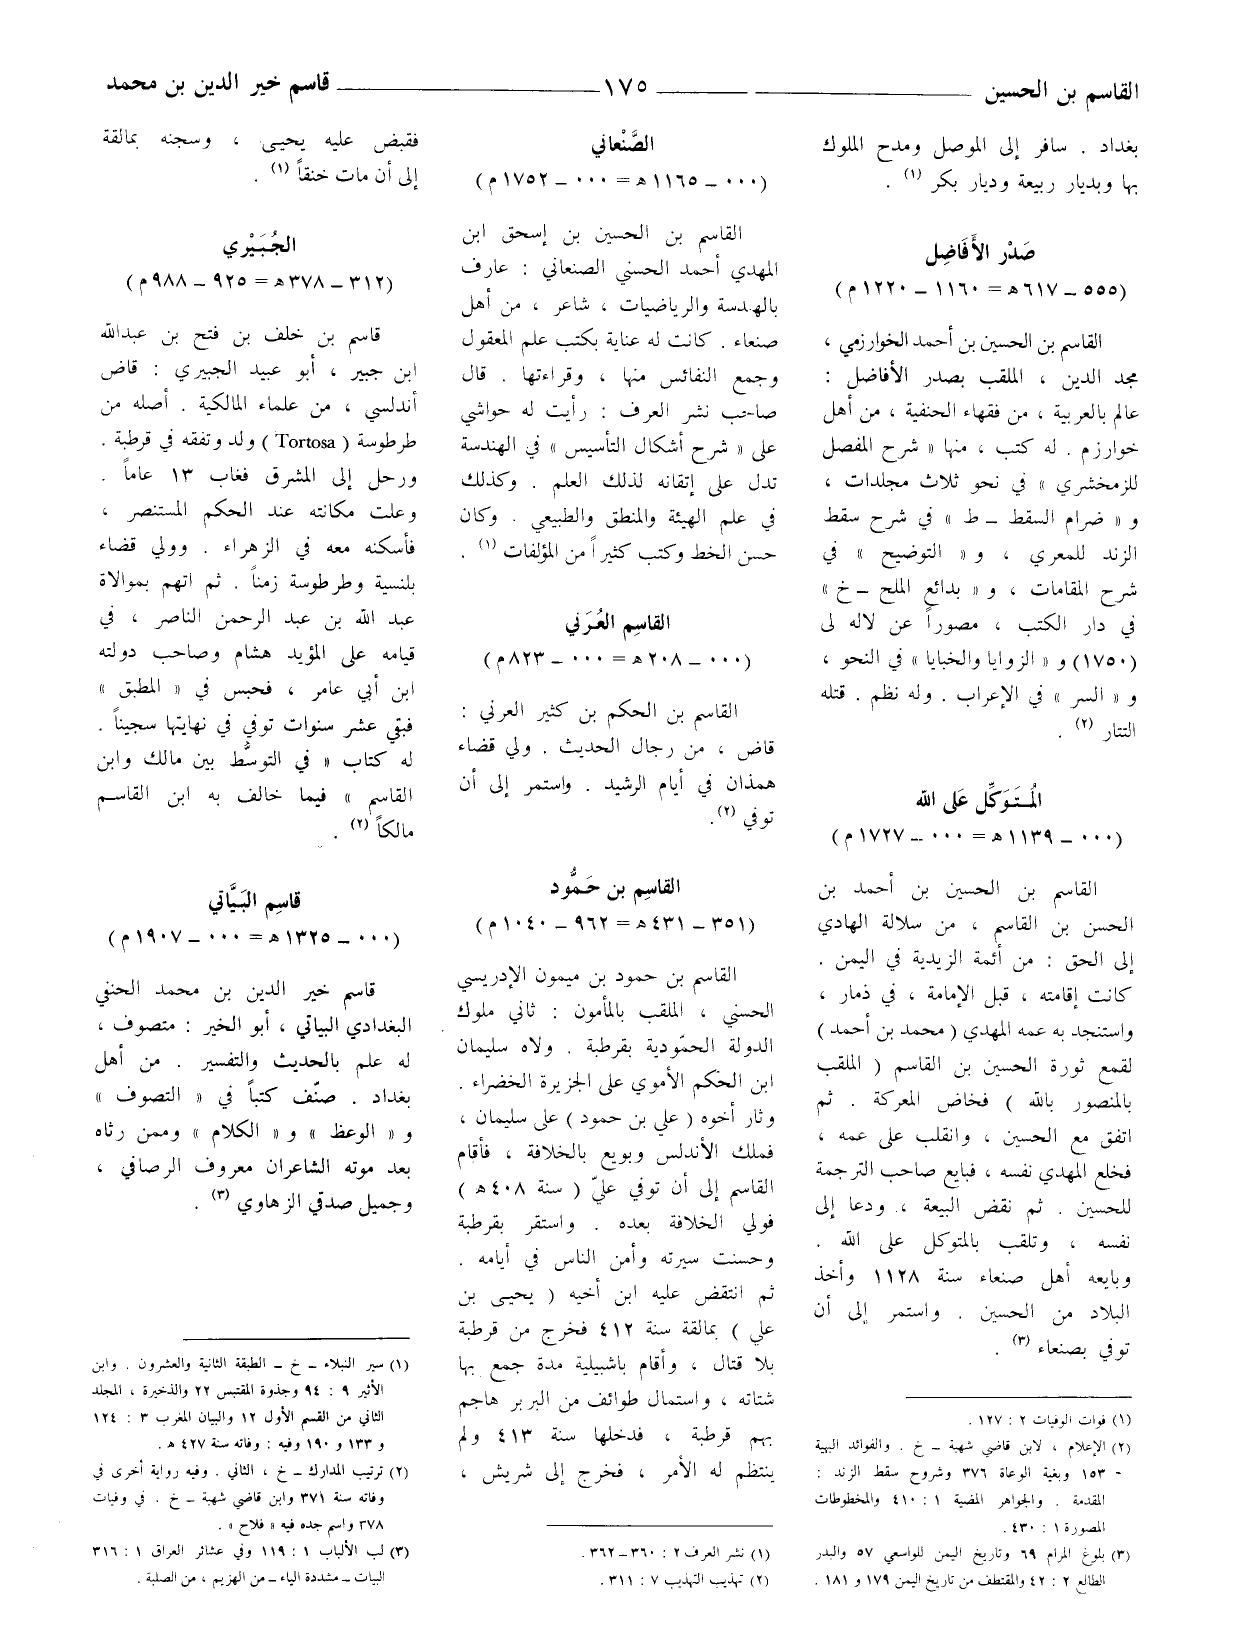 القاسم بن الحسين ــــــ ١٧٥ ــــــ قاسم خير الدين بن محمد
بغداد . سافر إلى الموصل ومدح الملوك
بها وبديار ربيعة وديار بكر (١) .
صَدْر الأَفَاضِل
(٥٥٥ ــ ٦١٧ هـ = ١١٦٠ ــ ١٢٢٠ م)
القاسم بن الحسين بن أحمد الخوارزمي ،
مجد الدين ، الملقب بصدر الأفاضل :
عالم بالعربية ، من فقهاء الحنفية ، من أهل
خوارزم . له كتب ، منها « شرح المفصل
للزمخشري » في نحو ثلاث مجلدات ،
و « ضرام السقط ــ ط » في شرح سقط
الزند للمعري ، و « التوضيح » في
شرح المقامات ، و « بدائع الملح ــ خ »
في دار الكتب ، مصوراً عن لاله لى
(١٧٥٠) و « الزوايا والخبايا » في النحو ،
و « السر » في الإعراب . وله نظم . قتله
التتار (٢) .
المُتَوَكِّل عَلى الله
(٠٠٠ ــ ١١٣٩ هـ = ٠٠٠ ــ ١٧٢٧ م)
القاسم بن الحسين بن أحمد بن
الحسن بن القاسم ، من سلالة الهادي
إلى الحق : من أئمة الزيدية في اليمن .
كانت إقامته ، قبل الإمامة ، في ذمار ،
واستنجد به عمه المهدي ( محمد بن أحمد )
لقمع ثورة الحسين بن القاسم ( الملقب
بالمنصور بالله ) فخاض المعركة . ثم
اتفق مع الحسين ، وانقلب على عمه ،
فخلع المهدي نفسه ، فبايع صاحب الترجمة
للحسين . ثم نقض البيعة ، ودعا إلى
نفسه ، وتلقب بالمتوكل على الله .
وبايعه أهل صنعاء سنة ١١٢٨ وأخذ
البلاد من الحسين . واستمر إلى أن
توفي بصنعاء (٣) .
(١) فوات الوفيات ٢ : ١٢٧ .
(٢) الإعلام ، لابن قاضي شهبة ــ خ . والفوائد البهية
- ١٥٣ وبغية الوعاة ٣٧٦ وشروح سقط الزند :
المقدمة . والجواهر المضية ١ : ٤١٠ والمخطوطات
المصورة ١ : ٤٣٠ .
(٣) بلوغ المرام ٦٩ وتاريخ اليمن للواسعي ٥٧ والبدر
الطالع ٢ : ٤٢ والمقتطف من تاريخ اليمن ١٧٩ و ١٨١ .
الصَّنْعاني
(٠٠٠ ــ ١١٦٥ هـ = ٠٠٠ ــ ١٧٥٢ م)
القاسم بن الحسين بن إسحق ابن
المهدي أحمد الحسني الصنعاني : عارف
بالهندسة والرياضيات ، شاعر ، من أهل
صنعاء . كانت له عناية بكتب علم المعقول
وجمع النفائس منها ، وقراءتها . قال
صاحب نشر العرف : رأيت له حواشي
على « شرح أشكال التأسيس » في الهندسة
تدل على إتقانه لذلك العلم . وكذلك
في علم الهيئة والمنطق والطبيعي . وكان
حسن الخط وكتب كثيراً من المؤلفات (١) .
القاسِم العُرَني
(٠٠٠ ــ ٢٠٨ هـ = ٠٠٠ ــ ٨٢٣ م)
القاسم بن الحكم بن كثير العرني :
قاض ، من رجال الحديث . ولي قضاء
همذان في أيام الرشيد . واستمر إلى أن
توفي (٢) .
القاسِم بن حَمُّود
(٣٥١ ــ ٤٣١ هـ = ٩٦٢ ــ ١٠٤٠ م)
القاسم بن حمود بن ميمون الإدريسي
الحسني ، الملقب بالمأمون : ثاني ملوك
الدولة الحمّودية بقرطبة . ولاه سليمان
ابن الحكم الأموي على الجزيرة الخضراء .
وثار أخوه ( علي بن حمود ) على سليمان ،
فملك الأندلس وبويع بالخلافة ، فأقام
القاسم إلى أن توفي عليّ ( سنة ٤٠٨ هـ )
فولي الخلافة بعده . واستقر بقرطبة
وحسنت سيرته وأمن الناس في أيامه .
ثم انتقض عليه ابن أخيه ( يحيى بن
علي ) بمالقة سنة ٤١٢ فخرج من قرطبة
بلا قتال ، وأقام باشبيلية مدة جمع بها
شتاته ، واستمال طوائف من البربر هاجم
بهم قرطبة ، فدخلها سنة ٤١٣ ولم
ينتظم له الأمر ، فخرج إلى شريش ،
(١) نشر العرف ٢ : ٣٦٠ــ٣٦٢ .
(٢) تهذيب التهذيب ٧ : ٣١١ .
فقبض عليه يحيى ، وسجنه بمالقة
إلى أن مات خنقاً (١) .
الجُبَيْري
(٣١٢ ــ ٣٧٨ هـ = ٩٢٥ ــ ٩٨٨ م)
قاسم بن خلف بن فتح بن عبدالله
ابن جبير ، أبو عبيد الجبيري : قاض
أندلسي ، من علماء المالكية . أصله من
طرطوسة ( Tortosa ) ولد وتفقه في قرطبة .
ورحل إلى المشرق فغاب ١٣ عاماً .
وعلت مكانته عند الحكم المستنصر ،
فأسكنه معه في الزهراء . وولي قضاء
بلنسية وطرطوسة زمناً . ثم اتهم بموالاة
عبد الله بن عبد الرحمن الناصر ، في
قيامه على المؤيد هشام وصاحب دولته
ابن أبي عامر ، فحبس في « المطبق »
فبقي عشر سنوات توفي في نهايتها سجيناً .
له كتاب « في التوسُّط بين مالك وابن
القاسم » فيما خالف به ابن القاسم
مالكاً (٢) .
قاسِم البَيَّاتي
(٠٠٠ ــ ١٣٢٥ هـ = ٠٠٠ ــ ١٩٠٧ م)
قاسم خير الدين بن محمد الحنفي
البغدادي البياتي ، أبو الخير : متصوف ،
له علم بالحديث والتفسير . من أهل
بغداد . صنّف كتباً في « التصوف »
و « الوعظ » و « الكلام » وممن رثاه
بعد موته الشاعران معروف الرصافي ،
وجميل صدقي الزهاوي (٣) .
(١) سير النبلاء ــ خ ــ الطبقة الثانية والعشرون . وابن
الأثير ٩ : ٩٤ وجذوة المقتبس ٢٢ والذخيرة ، المجلد
الثاني من القسم الأول ١٢ والبيان المغرب ٣ : ١٢٤
و ١٣٣ و ١٩٠ وفيه : وفاته سنة ٤٢٧ هـ .
(٢) ترتيب المدارك ــ خ ، الثاني . وفيه رواية أخرى في
وفاته سنة ٣٧١ وابن قاضي شهبة ــ خ . في وفيات
٣٧٨ واسم جده فيه « فلاح » .
(٣) لب الألباب ١ : ١١٩ وفي عشائر العراق ١ : ٣١٦
البيات ــ مشددة الياء ــ من الهزيم ، من الصلبة .